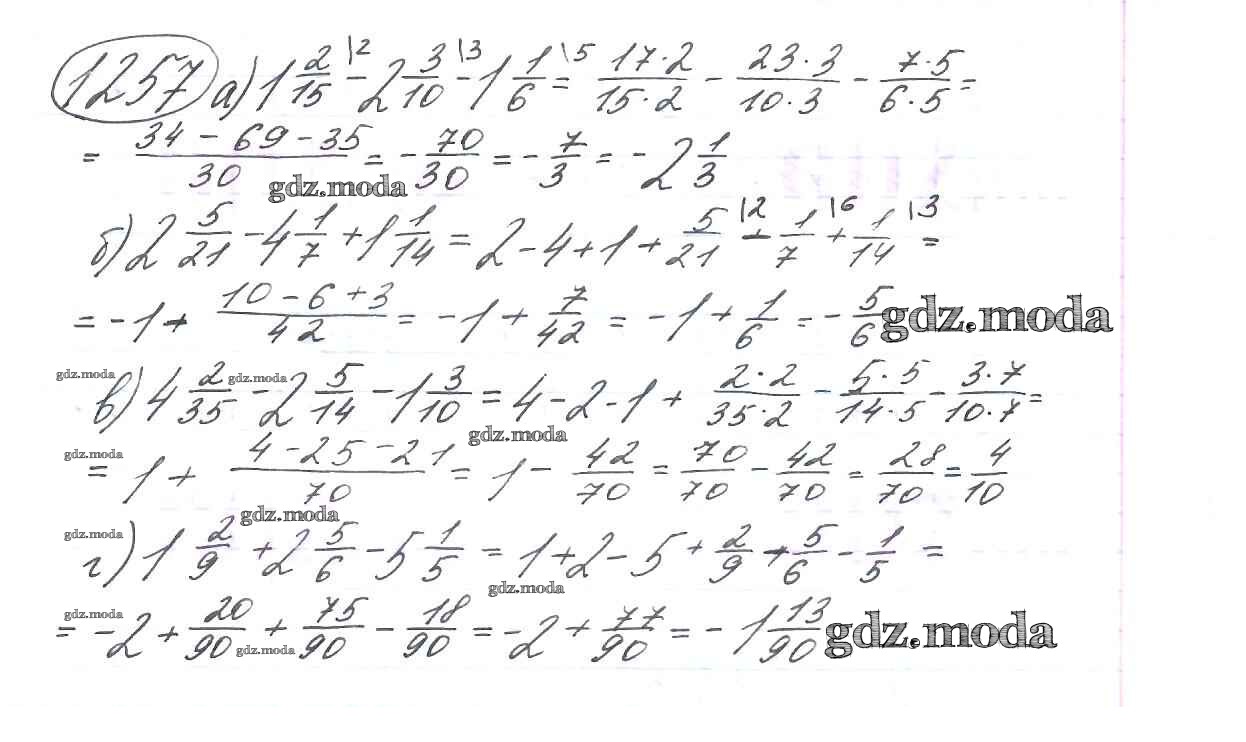 1257 а) 1 2/15 \2 - 2 3/10 \3 - 1 1/6 \5 = 17·2/15·2 - 23·3/10·3 - 7·5/6·5 =
= 34 - 69 - 35/30 = - 70/30 = - 7/3 = - 2 1/3
gdz.moda
б) 2 5/21 - 4 1/7 + 1 1/14 = 2 - 4 + 1 + 5/21 \2 - 1/7 \6 + 1/14 \3 =
= -1 + 10 - 6 + 3/42 = -1 + 7/42 = -1 + 1/6 = - 5/6 gdz.moda
gdz.moda в) 4 2/35 gdz.moda - 2 5/14 - 1 3/10 = 4 - 2 - 1 + 2·2/35·2 - 5·5/14·5 - 3·7/10·7 =
gdz.moda
gdz.moda = 1 + 4 - 25 - 21/70 = 1 - 42/70 = 70/70 - 42/70 = 28/70 = 4/10
gdz.moda
gdz.moda г) 1 2/9 + 2 5/6 - 5 1/5 = 1 + 2 - 5 + 2/9 + 5/6 - 1/5 =
gdz.moda
gdz.moda = -2 + 20/90 + 75/90 - 18/90 = -2 + 77/90 = - 1 13/90 gdz.moda
gdz.moda